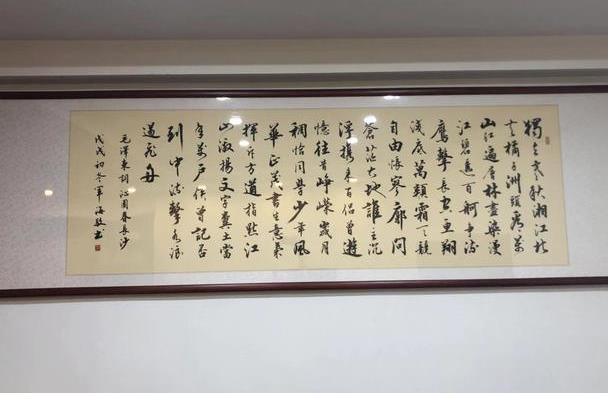 獨立寒秋湘江北
去橘子洲頭看萬
山紅遍層林盡染漫
江碧透百舸爭流
鷹擊長空魚翔
淺底萬類霜天競
自由悵寥廓問
蒼茫大地誰主沉
浮携來百侣曾遊
憶往昔崢嶸歲月
稠恰同學少年風
華正茂書生意氣
揮斥方遒指點江
山激揚文字糞土當
年萬戶侯曾記否
到中流擊水浪
遏飛舟
毛澤東詞沁園春長沙
戊戌初冬軍海敬書